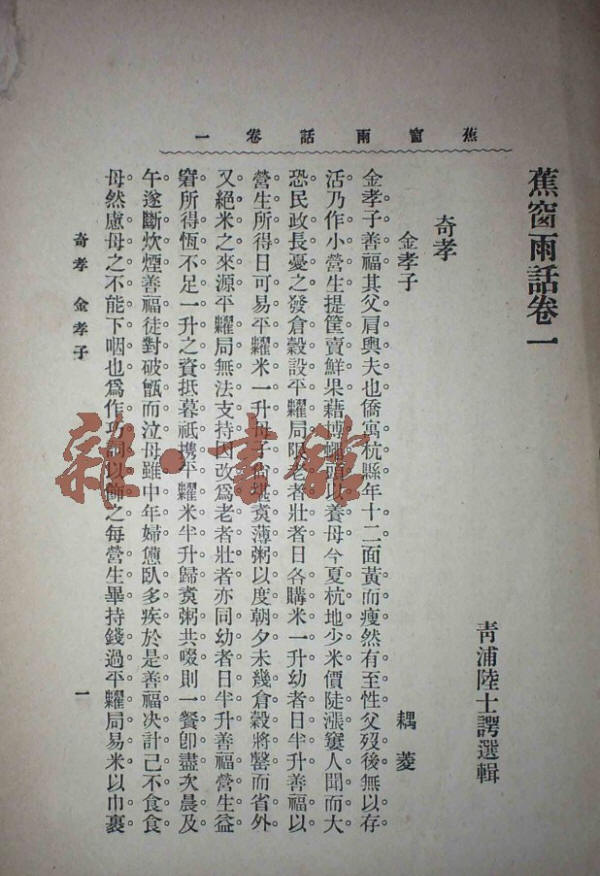 蕉窗雨話卷一
蕉窗雨話卷一
青浦陸士諤選輯
奇孝
金孝子
耦菱
金孝子善福其父肩輿夫也僑寓杭縣年十二面黃而瘦然有至性父歿後無以存
活乃作小營生提筐賣鮮果藉博蠅頭以養母今夏杭地少米價陡漲窶人聞而大
恐民政長憂之發倉穀設平糶局限老者壯者日各購米一升幼者日半升善福以
營生所得日可易平糶米一升母子尚堪煑薄粥以度朝夕未幾倉穀將罄而省外
又絕米之來源平糶局無法支持因改爲老者壯者亦同幼者日半升善福營生益
窘所得恆不足一升之資抵暮祇携平糶米半升歸煑粥共啜則一餐卽盡次晨及
午遂斷炊煙善福徒對破甑而泣母雖中年婦憊臥多疾於是善福決計己不食食
母然慮母之不能下咽也爲作巧詞以飾之每營生畢持錢過平糶局易米以巾裹
奇孝 金孝子
一
雜·書館